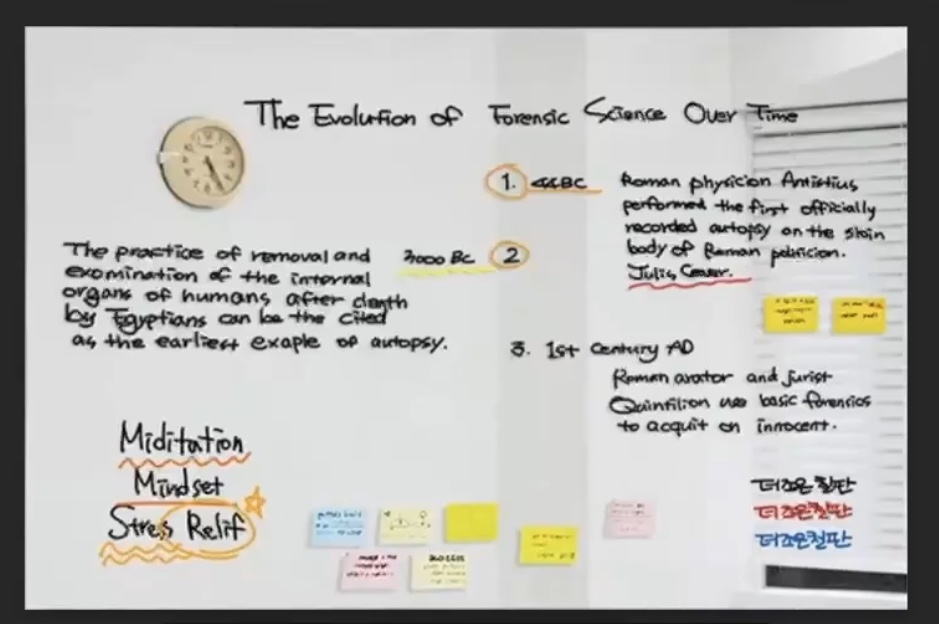 The Evolution of Forensic Science Over Time
1. 44BC
Roman physicion Antistius
performed the first officially
recorded autopsy on the slain
body of Roman politicion.
The practice of removal and
exomination of the internal
organs of humans after death
by Egyptians can be the cited
as the earliest exaple of autopsy.
3000 BC 2
3. 1st Century AD
Roman orator and jurist
Quintilion use basic forensics
to acquit on innocent.
Miditation
Mindset
Stress Relif
더조은칠판
더조은칠판
더조은칠판